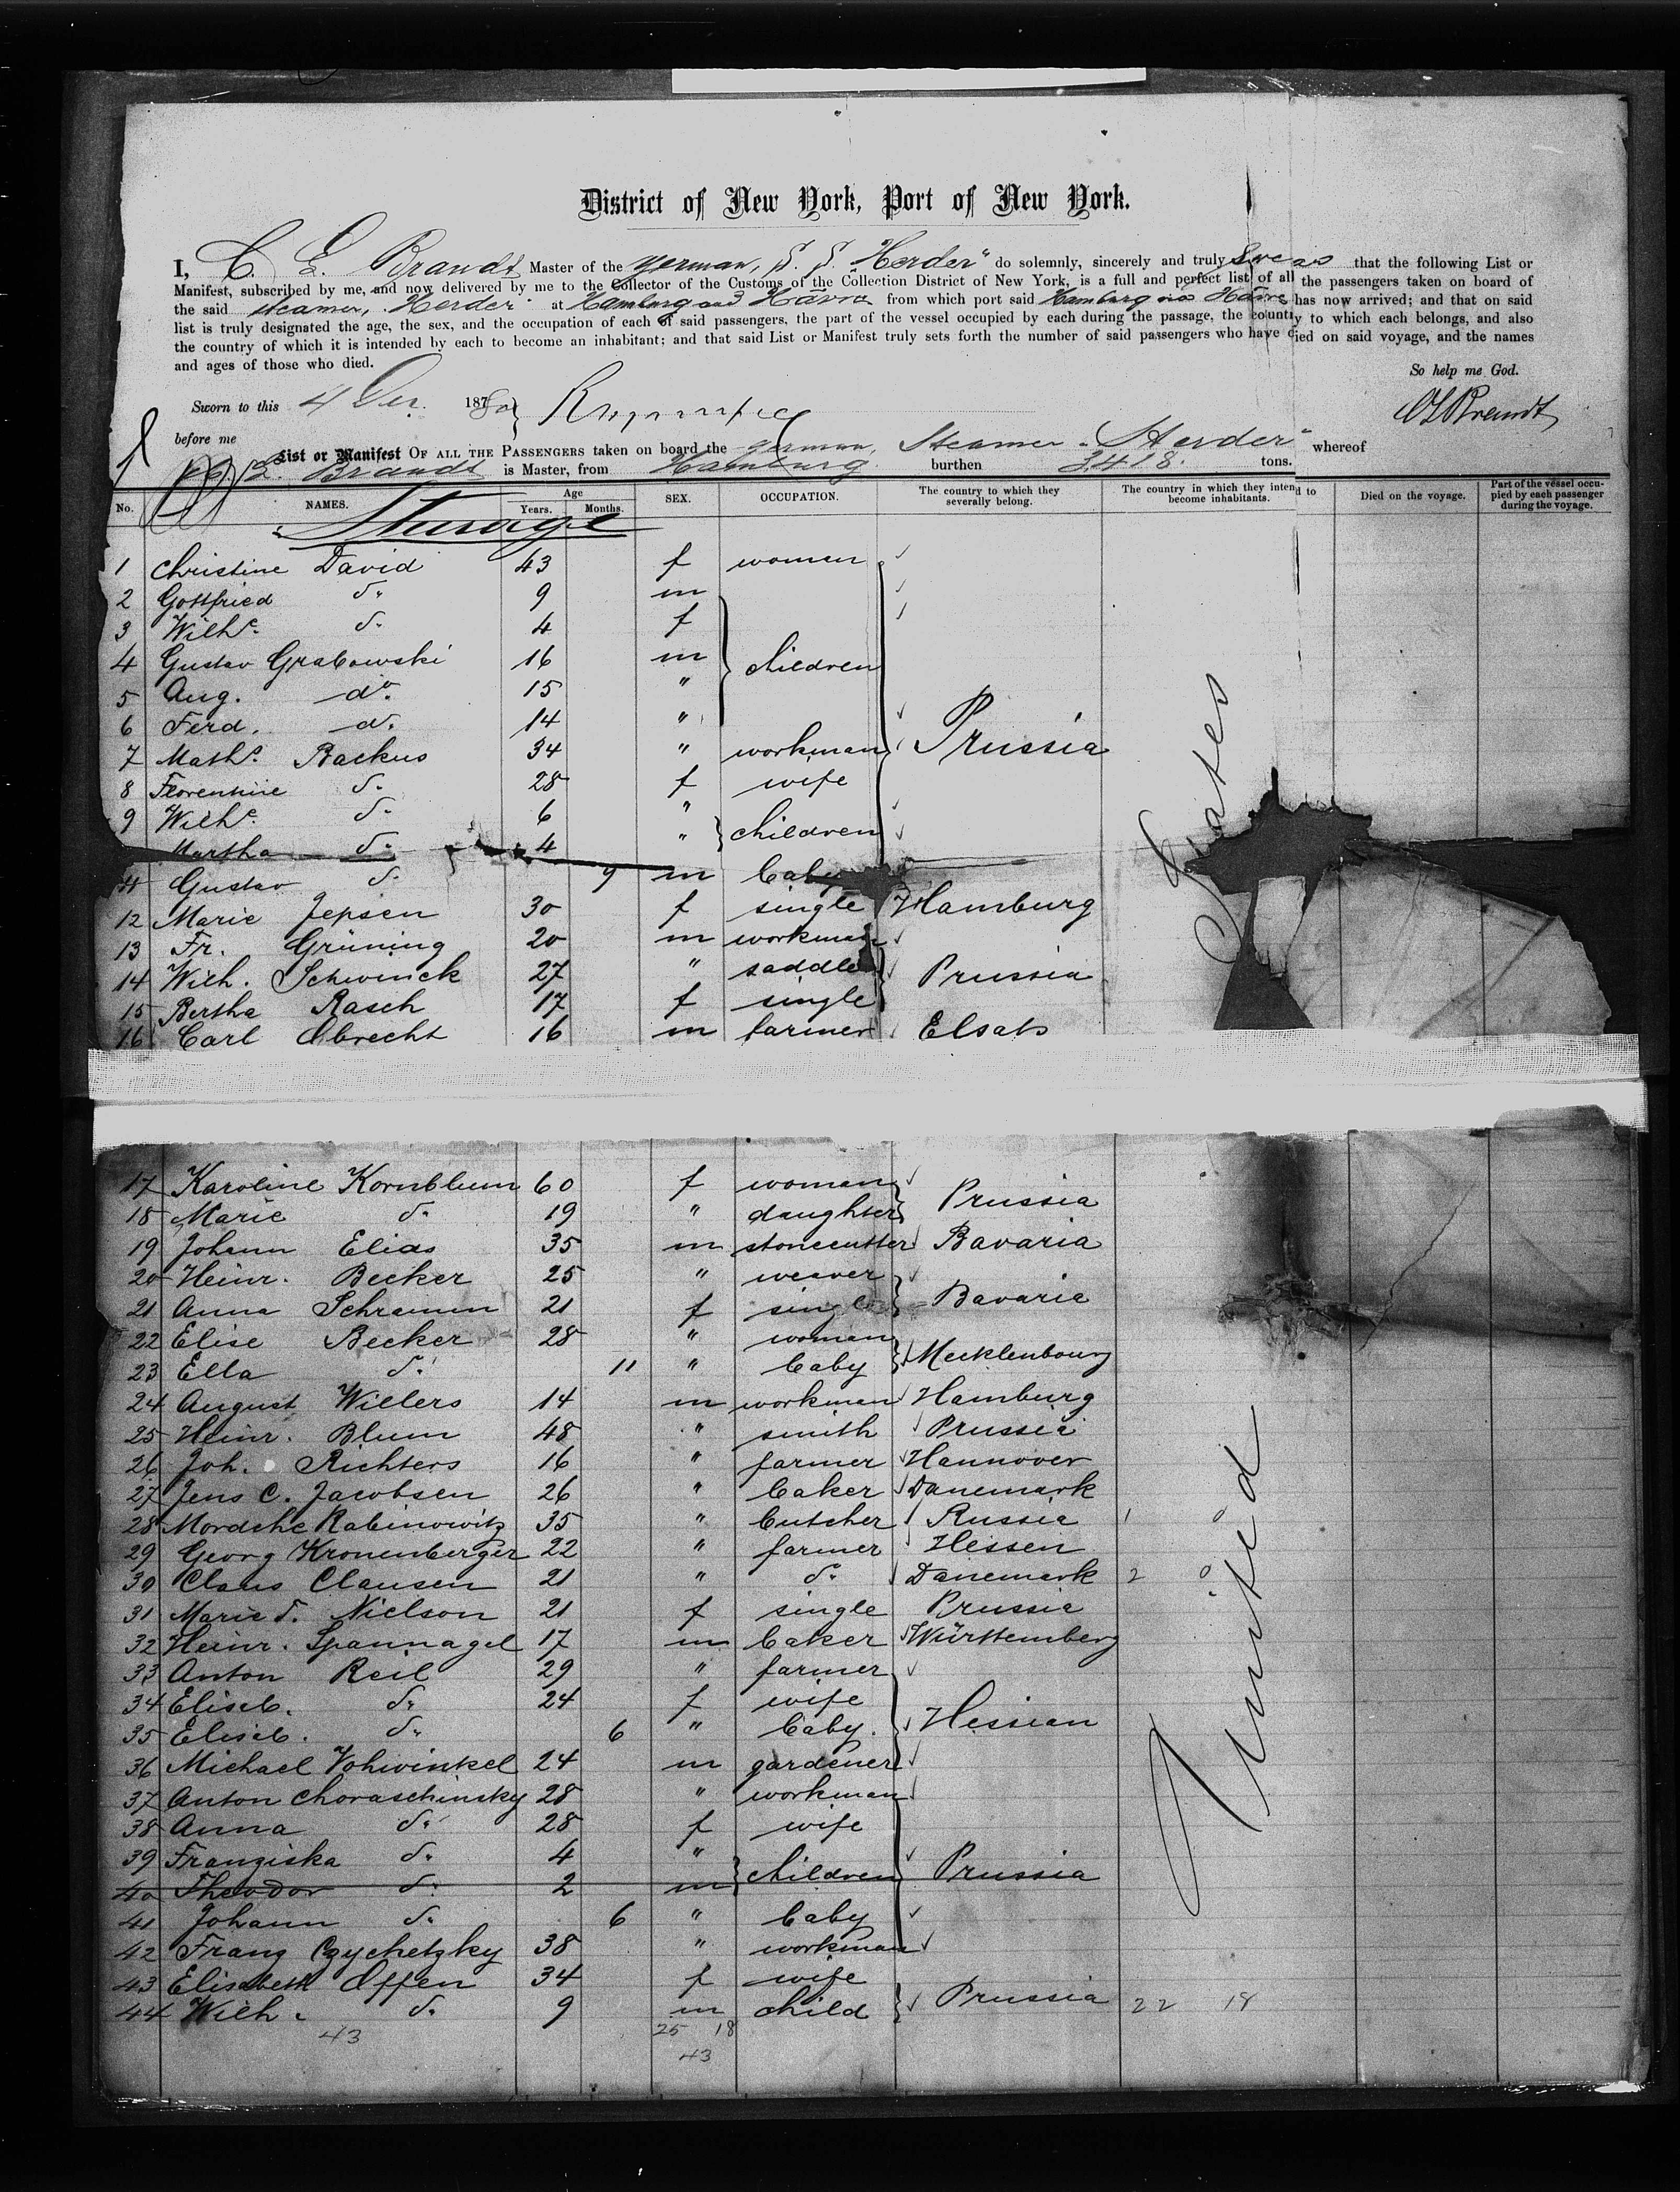 District of New York, Port of New York.
I, C. L. Brandt Master of the german, S. S. "Herder" do solemnly, sincerely and truly swear that the following List or
Manifest, subscribed by me, and now delivered by me to the Collector of the Customs of the Collection District of New York, is a full and perfect list of all the passengers taken on board of
the said steamer, "Herder" at Hamburg and Havre from which port said Hamburg via Havre has now arrived; and that on said
list is truly designated the age, the sex, and the occupation of each of said passengers, the part of the vessel occupied by each during the passage, the country to which each belongs, and also
the country of which it is intended by each to become an inhabitant; and that said List or Manifest truly sets forth the number of said passengers who have died on said voyage, and the names
and ages of those who died.
So help me God.
Sworn to this 4 Dec. 1878 80
CLBrandt
before me
List or Manifest OF ALL THE PASSENGERS taken on board the german, Steamer "Herder" whereof
L. Brandt is Master, from Hamburg burthen 3418. tons.
No. NAMES. Age Years. Months. SEX. OCCUPATION. The country to which they severally belong. The country in which they intend to become inhabitants. Died on the voyage. Part of the vessel occupied by each passenger during the voyage.
Sturage
1 Christine David 43 f woman
2 Gottfried do. 9 m
3 Wilhe. do. 4 f
4 Gustav Grabowski 16 m children
5 Aug. do. 15 "
6 Ferd. do. 14 "
7 Maths. Backus 34 " workman Prussia
8 Florentine do. 28 f wife
9 Wilhe. do. 6 "
Martha do. 4 " children
11 Gustav do. 9 m baby
12 Marie Jepsen 30 f single Hamburg
13 Fr. Grüning 20 m workman
14 Wilh. Schwinck 27 " saddler Prussia
15 Bertha Rasch 17 f single
16 Carl Obrecht 16 m farmer Elsats
17 Karoline Kornblum 60 f woman
18 Marie do. 19 " daughter Prussia
19 Johann Elias 35 m stonecutter Bavaria
20 Heinr. Becker 25 " weaver
21 Anna Schramm 21 f single Bavaria
22 Elise Becker 28 " woman
23 Ella do. 11 " baby Mecklenbourg
24 August Willers 14 m workman Hamburg
25 Heinr. Blum 48 " smith Prussia
26 Joh. Richters 16 " farmer Hannover
27 Jens C. Jacobsen 26 " baker Danemark
28 Mordche Rabinowitz 35 " butcher Russia 1 0
29 Georg Kronenberger 22 " farmer Hessen
30 Claus Clausen 21 " do. Danemark 2 0
31 Marie d. Nielson 21 f single Prussia
32 Heinr. Spannagel 17 m baker Württemberg
33 Anton Reil 29 " farmer
34 Eliseb. do. 24 f wife
35 Eliseb. do. 6 " baby. Hessian
36 Michael Vohwinkel 24 m gardener
37 Anton Choraschinsky 28 " workman
38 Anna do. 28 f wife
39 Franziska do. 4 "
40 Theodor do. 2 m children Prussia
41 Johann do. 6 " baby
42 Franz Czychetzky 38 " workman
43 Elisabeth Offen 34 f wife
44 Wilh. do. 9 m child Prussia 22 18
43 25 18
43
United States